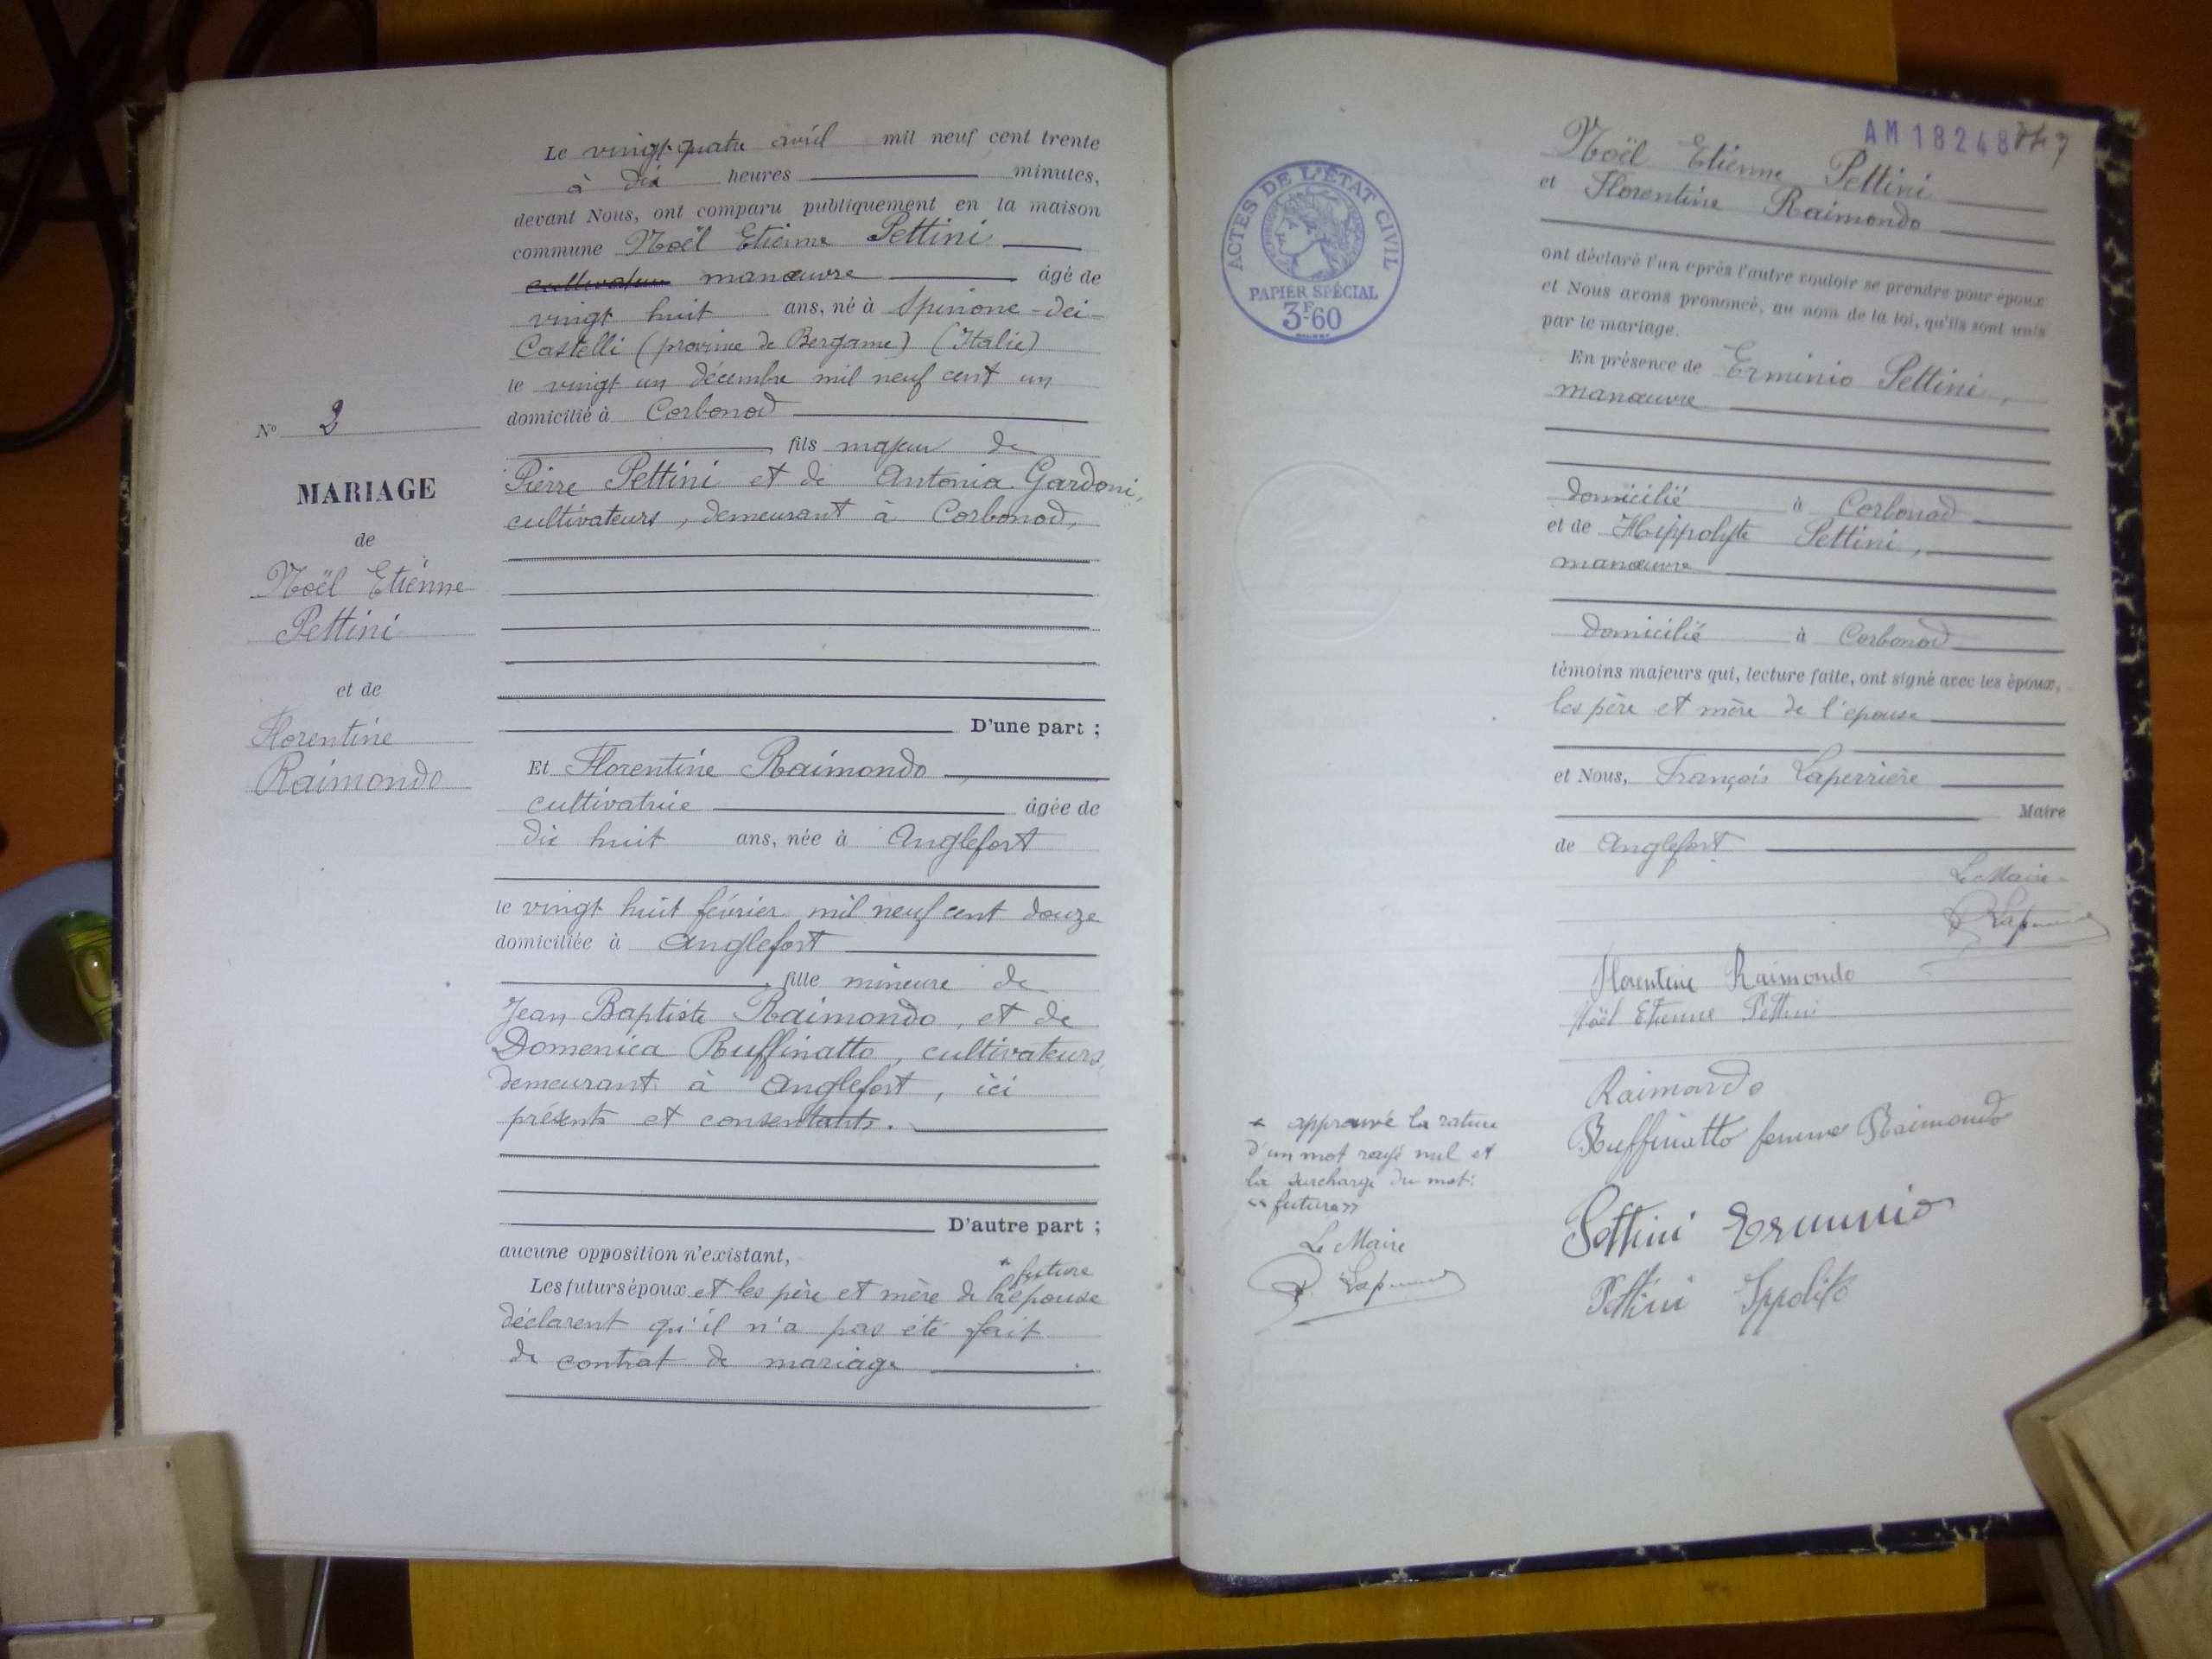 Le vingt-quatre avril mil neuf cent trente
à dix heures minutes,
devant Nous, ont comparu publiquement en la maison
commune Noël Etienne Pettini
cultivateur manœuvre âgé de
vingt huit ans, né à Spinone-dei-
Castelli (province de Bergame) (Italie)
le vingt un décembre mil neuf cent un
domicilié à Corbonod
fils majeur de
Pierre Pettini et de Antonia Gardoni,
cultivateurs, demeurant à Corbonod,
D'une part ;
Et Florentine Raimondo
cultivatrice âgée de
dix huit ans, née à Anglefort
le vingt huit février mil neuf cent douze
domiciliée à Anglefort
fille mineure de
Jean Baptiste Raimondo, et de
Domenica Ruffinatto, cultivateurs,
demeurant à Anglefort, ici
présents et consentants.
D'autre part ;
aucune opposition n'existant,
* future
Les futurs époux et les père et mère de l'épouse
déclarent qu'il n'a pas été fait
de contrat de mariage
N° 2
MARIAGE
de
Noël Etienne
Pettini
et de
Florentine
Raimondo
AM 18248
ACTES DE L'ÉTAT CIVIL
RÉPUBLIQUE FRANÇAISE
PAPIER SPÉCIAL
3F-60
Noël Etienne Pettini
et Florentine Raimondo
ont déclaré l'un après l'autre vouloir se prendre pour époux
et Nous avons prononcé, au nom de la loi, qu'ils sont unis
par le mariage.
En présence de Erminio Pettini,
manœuvre
domicilié à Corbonod
et de Hippolyte Pettini,
manœuvre
domicilié à Corbonod
témoins majeurs qui, lecture faite, ont signé avec les époux,
les père et mère de l'épouse
et Nous, François Laperrière
Maire
de Anglefort
Le Maire
Florentine Raimondo
Noël Etienne Pettini
Raimondo
Ruffinatto femme Raimondo
Pettini Erminio
Pettini Ippolito
* approuvé la rature
d'un mot rayé nul et
la surcharge du mot:
"future"
Le Maire